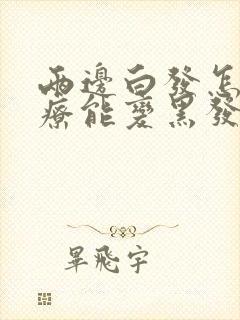 兩邊白發怎
療能變黑發
畢飛宇